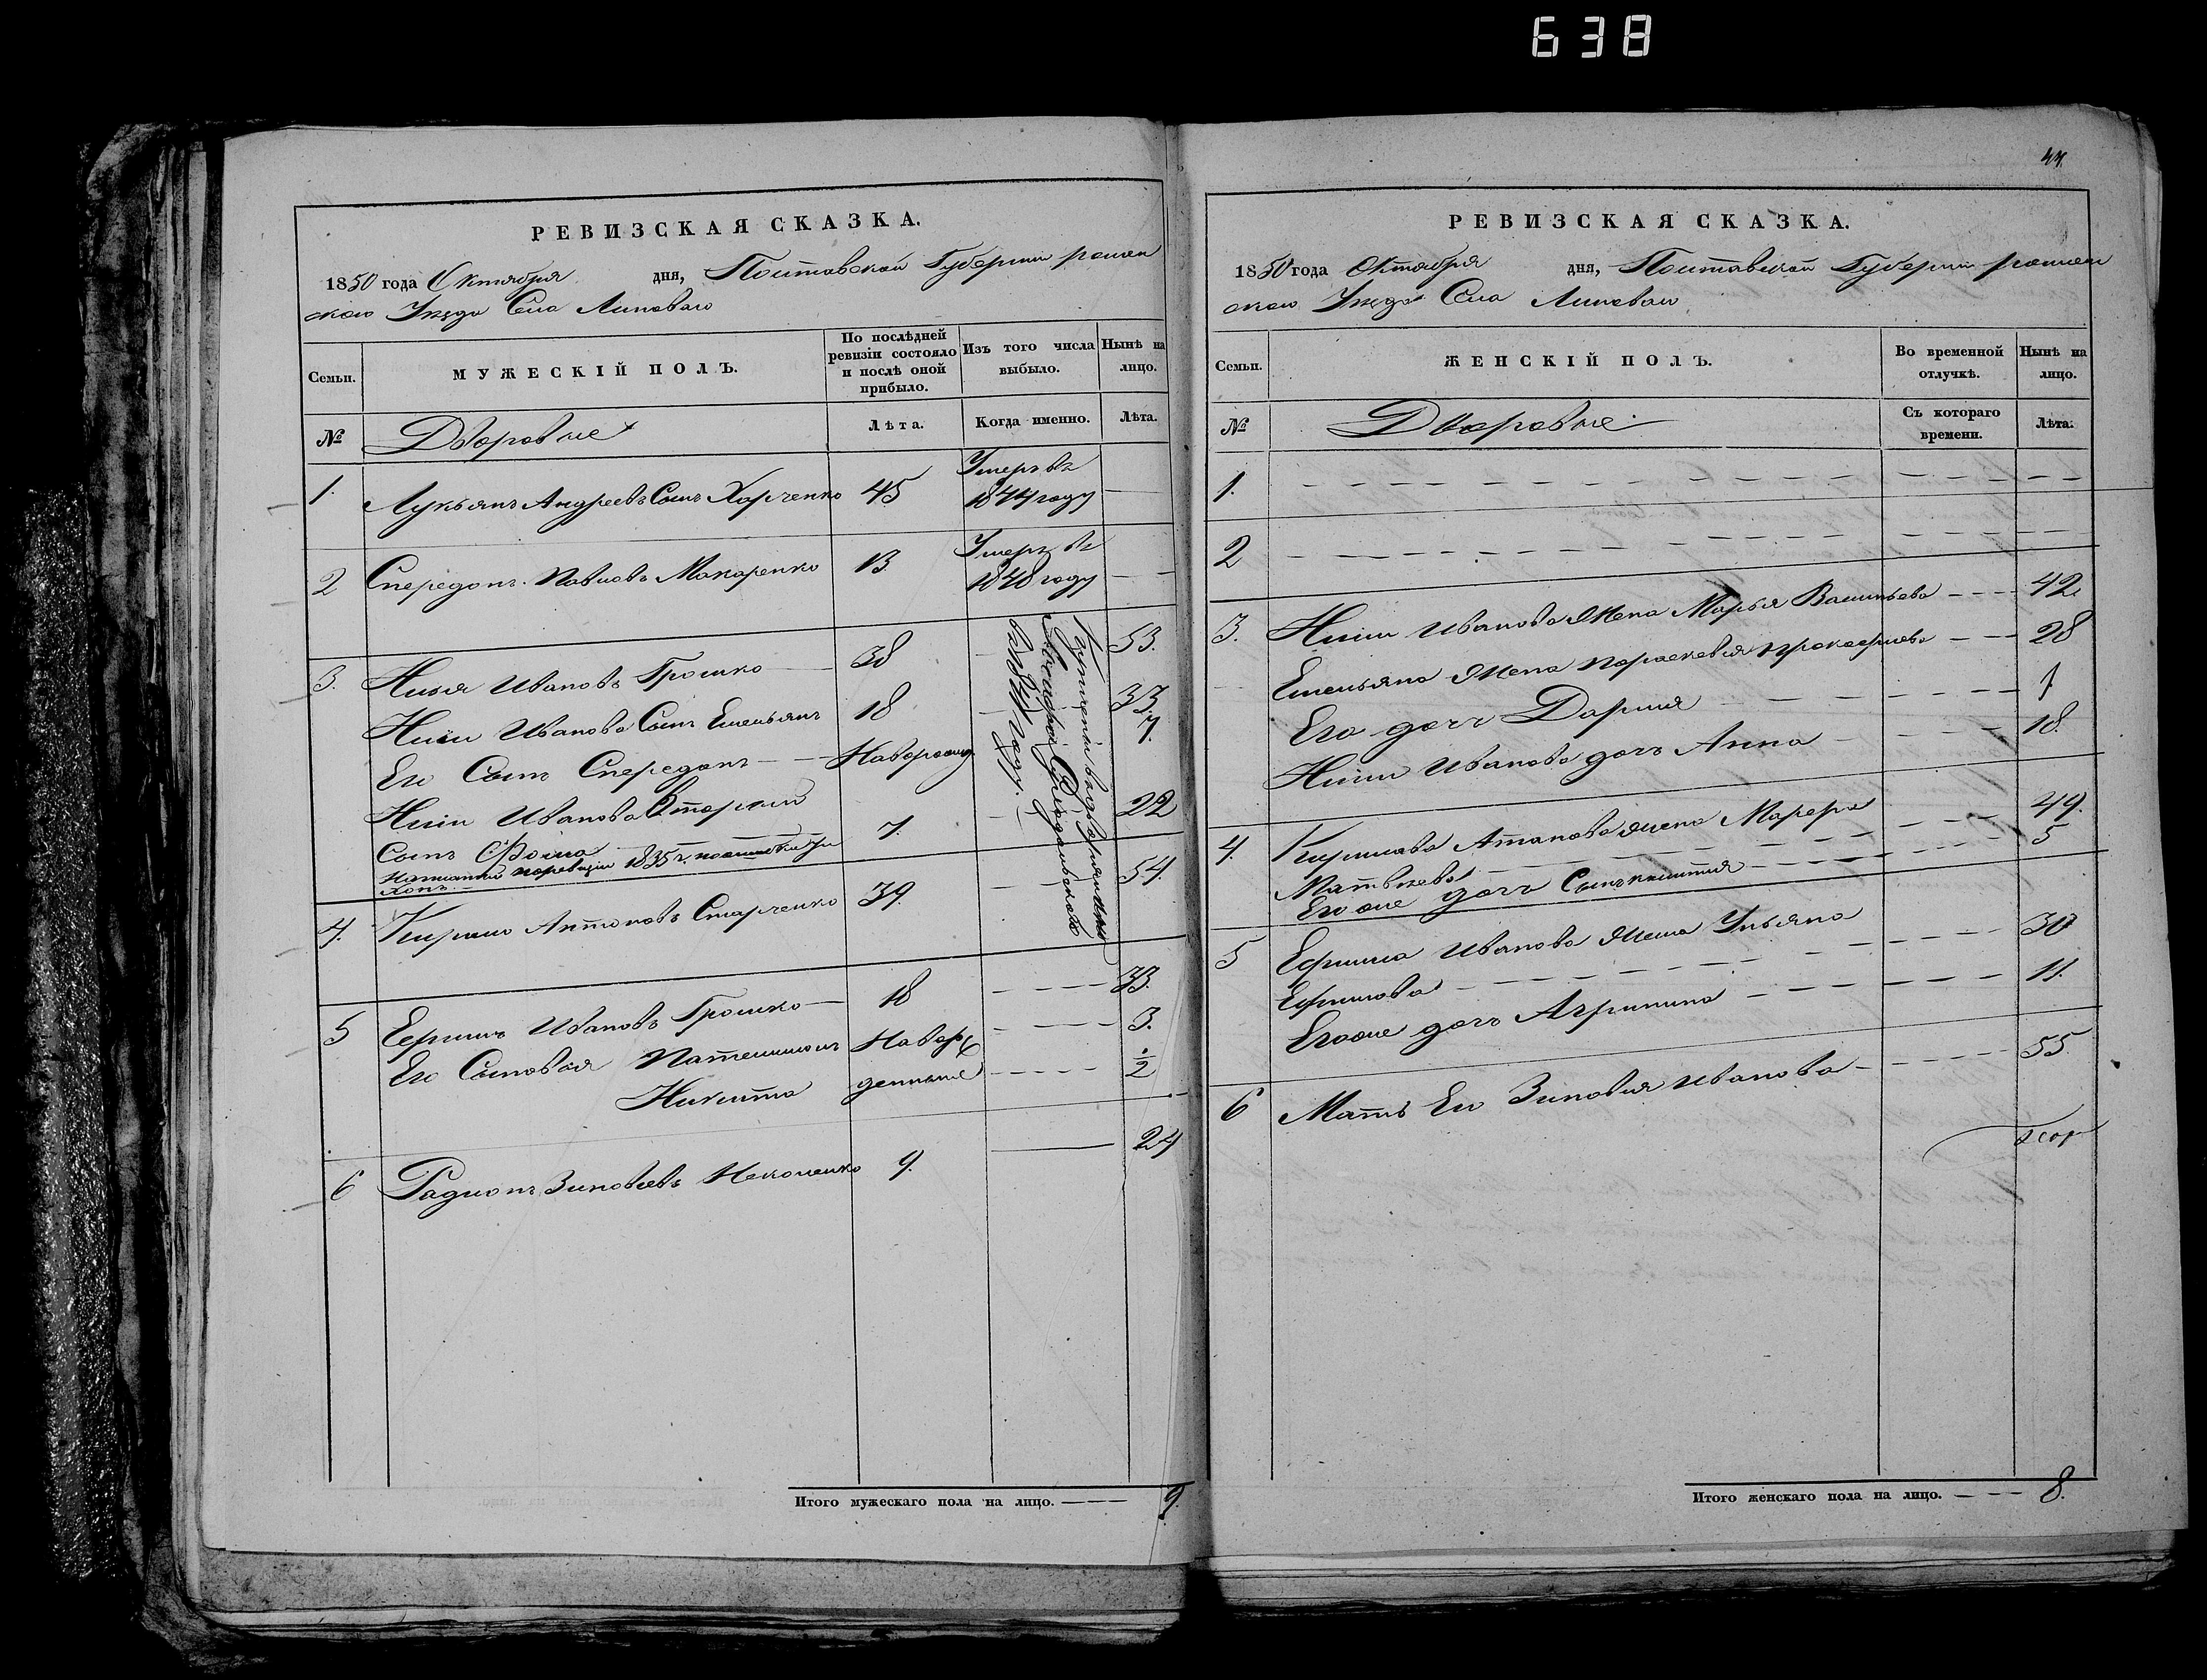 638
44.
РЕВИЗСКАЯ СКАЗКА.
1850 года Октября дня, Полтавской Губернии ромен
скаго Уезда Села Липоваго
Семьи. МУЖЕСКІЙ ПОЛЪ. По послѣдней ревизіи состояло и послѣ оной прибыло. Изъ того числа выбыло. Нынѣ на лицо.
№ Дворовые Лѣта. Когда именно. Лѣта.
1. Лукьянъ Андреевъ Сынъ Харченко 45 Умеръ въ 1844 году —
2 Спередонъ Павловъ Макаренко 13 Умеръ въ 1848 году — —
3. Илья Ивановъ Грошко — 38 — 53.
Ильи Иванова Сынъ Емельянъ 18 — 33.
Его Сынъ Спередонъ — — Новорожд 7.
Ильи Иванова Вторый
Сынъ Фома 7. — 22
написанный по ревизіи 1835 г. по ошибки Ти
хонъ. —
Куплены
въ 184 году. —
4. Кирило Антоновъ Старченко 39. — — 54.
5 Ефримъ Ивановъ Грошко — 18 — — — — 33.
Его Сыновья Пателимонъ Новоро — — — — 3.
Никита жденные — — — — 1/2
6 Радионъ Зиновьевъ Неколенко 9. — 24
Итого мужескаго пола на лицо. — — — 9.
РЕВИЗСКАЯ СКАЗКА.
1850 года Октября дня, Полтавской Губерніи ромен
скаго Уезда Села Липоваго
Семьи. ЖЕНСКІЙ ПОЛЪ. Во временной отлучкѣ. Нынѣ на лицо.
№ Дворовые Съ котораго времени. Лѣта.
1. — — — — — — — — — —
2 — — — — — — — — — —
3. Ильи Иванова Жена Марья Васильева — — — 42
Емельяна Жена Пораскевия Прокофиева — — 28
Его дочь Дария — — — — 1
Ильи Иванова дочь Анна — — — — 18.
4. Кирилова Атанова жена Марфа
Матвеева — — — — — — 49.
Его же дочь Сынклития — — — — 5
5 Ефрима Иванова Жена Ульяна
Ефимова — — — — — — 30
Его же дочь Агрипина — — — — 11.
6 Мать Его Зиновия Иванова — — — — 55.
Итого женскаго пола на лицо. — — — 8.